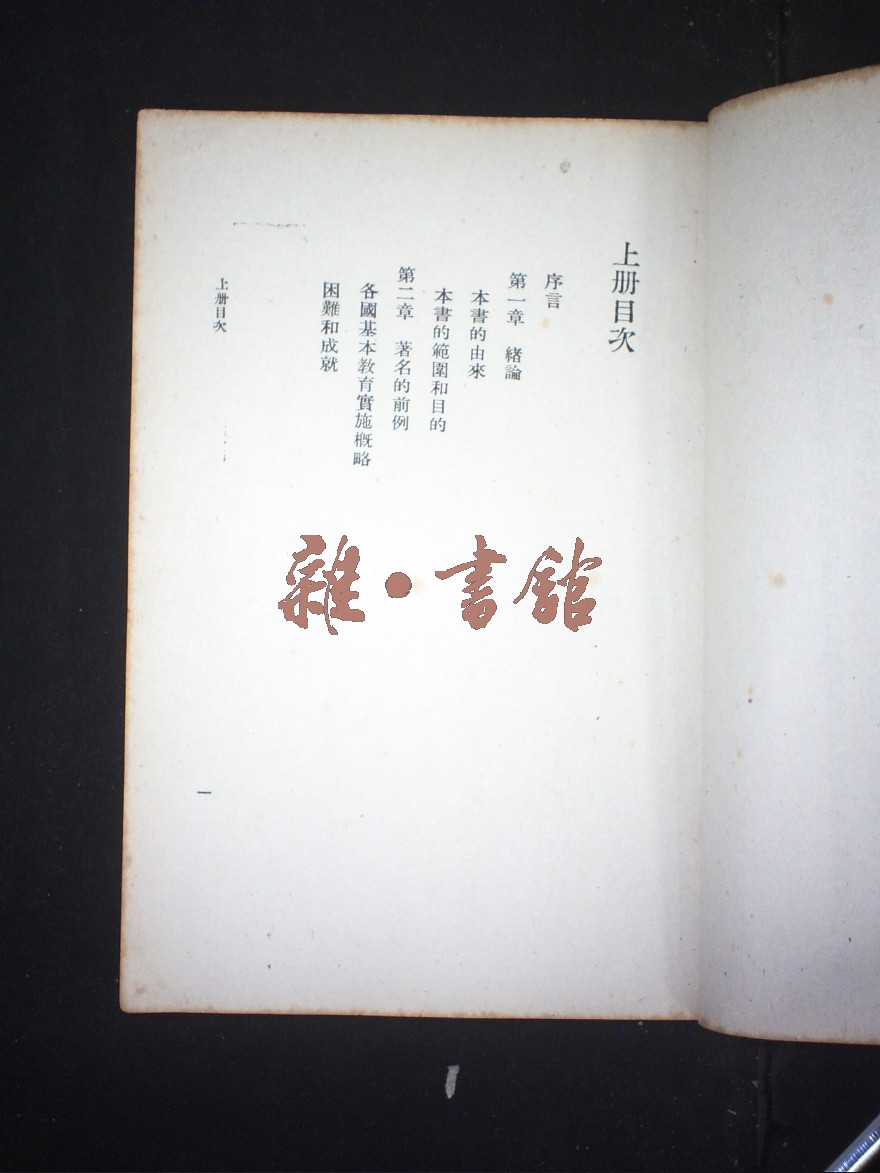 上册目次
序言
第一章　緒論
本書的由來
本書的範圍和目的
第二章　著名的前例
各國基本教育實施概略
困難和成就
上册目次
一
雜·書館